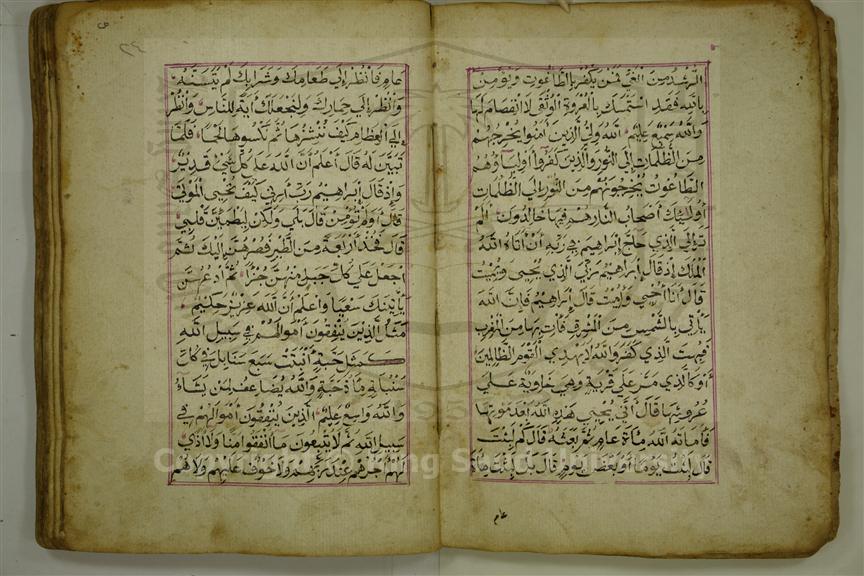 الرشد من الغي فمن يكفر بالطاغوت ويؤمن
بالله فقد استمسك بالعروة الوثقى لا انفصام لها
والله سميع عليم الله ولي الذين آمنوا يخرجهم
من الظلمات إلى النور والذين كفروا أولياؤهم
الطاغوت يخرجونهم من النور إلى الظلمات
أولئك أصحاب النار هم فيها خالدون ألم
تر إلى الذي حاج إبراهيم في ربه أن أتاه الله
الملك إذ قال إبراهيم ربي الذي يحيى ويميت
قال أنا أحيي وأميت قال إبراهيم فإن الله
يأتي بالشمس من المشرق فأت بها من المغرب
فبهت الذي كفر والله لا يهدي القوم الظالمين
أو كالذي مر على قرية وهي خاوية على
عروشها قال أنى يحيى هذه الله بعد موتها
فأماته الله مائة عام ثم بعثه قال كم لبثت
قال لبثت يوما أو بعض يوم قال بل لبثت مائة
عام
عام فانظر إلى طعامك وشرابك لم يتسنه
وانظر إلى حمارك ولنجعلك آية للناس وانظر
إلى العظام كيف ننشزها ثم نكسوها لحما فلما
تبين له قال أعلم أن الله على كل شيء قدير
وإذ قال إبراهيم رب أرني كيف تحيى الموتى
قال أولم تؤمن قال بلى ولكن ليطمئن قلبي
قال فخذ أربعة من الطير فصرهن إليك ثم
اجعل على كل جبل منهن جزءا ثم ادعهن
يأتينك سعيا واعلم أن الله عزيز حكيم
مثل الذين ينفقون أموالهم في سبيل الله
كمثل حبة أنبتت سبع سنابل في كل
سنبلة مائة حبة والله يضاعف لمن يشاء
والله واسع عليم الذين ينفقون أموالهم في
سبيل الله ثم لا يتبعون ما أنفقوا منا ولا أذى
لهم أجرهم عند ربهم ولا خوف عليهم ولا هم